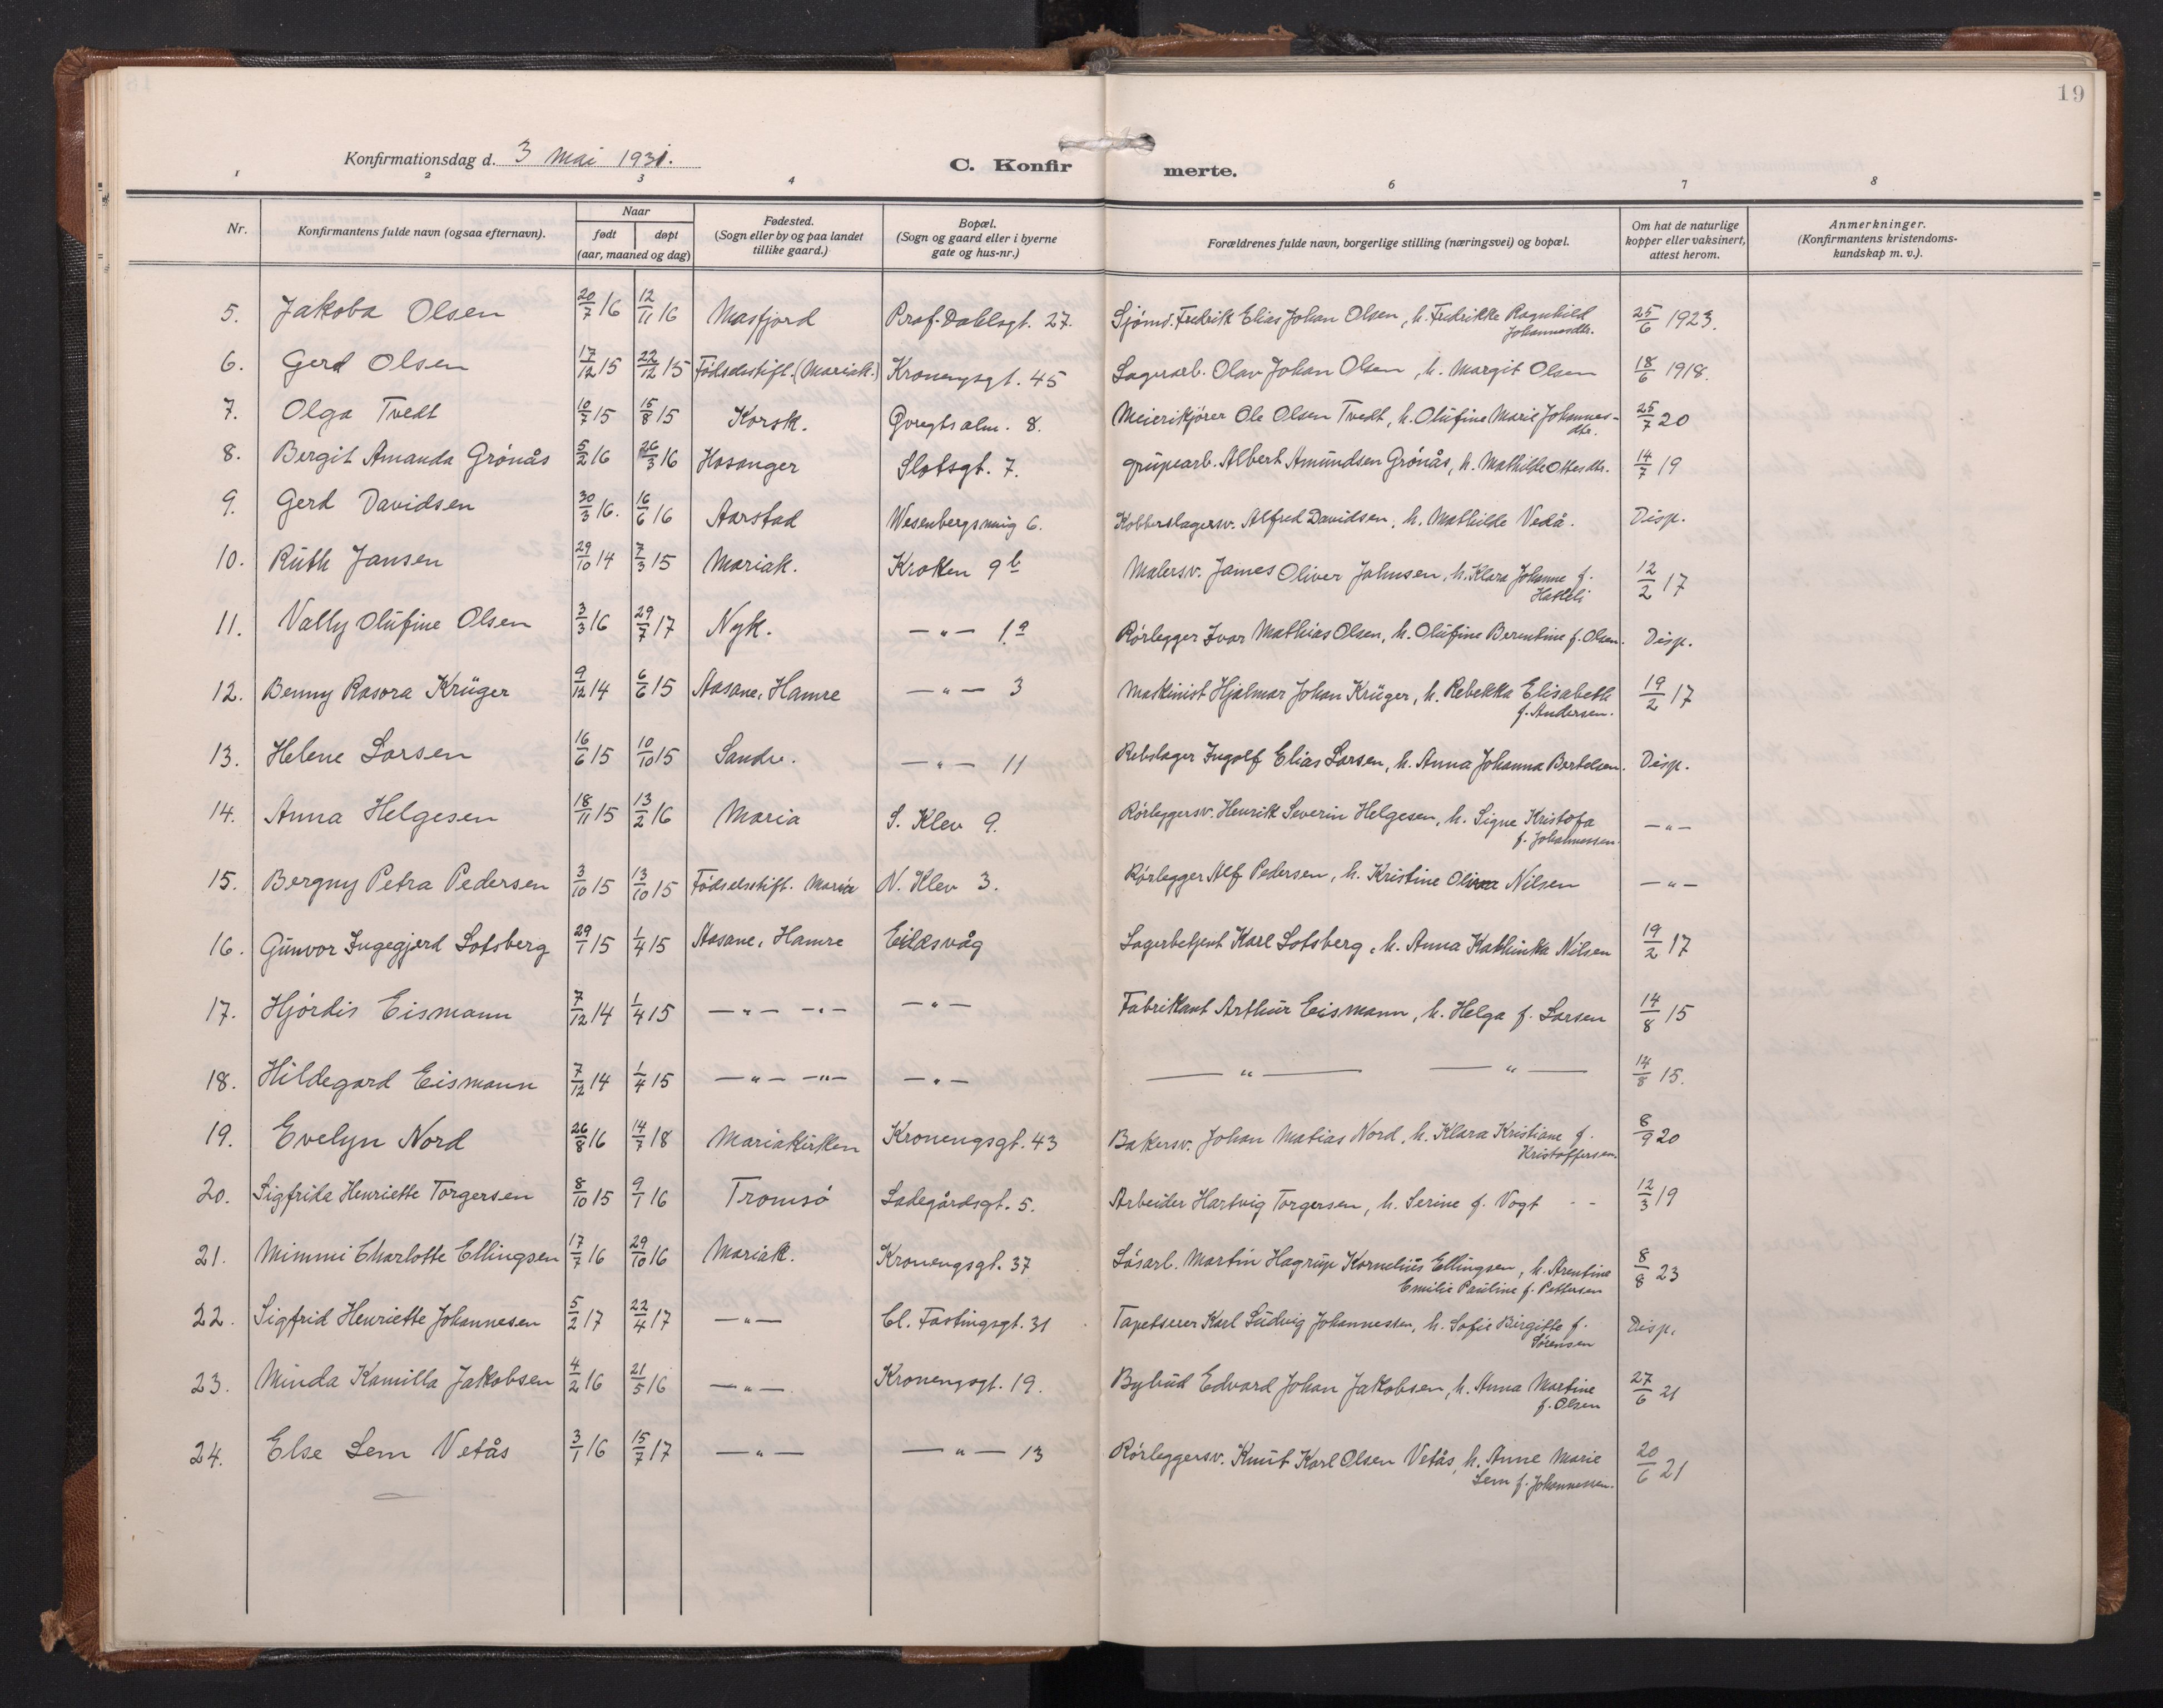 19
Konfirmationsdag d. 3 Mai 1931.
C. Konfirmerte.
1 2 3 4 6 7 8
Nr. Konfirmantens fulde navn (ogsaa efternavn). Naar født døpt (aar, maaned og dag) Fødested. (Sogn eller by og paa landet tillike gaard.) Bopæl. (Sogn og gaard eller i byerne gate og hus-nr.) Forældrenes fulde navn, borgerlige stilling (næringsvei) og bopæl. Om hat de naturlige kopper eller vaksinert, attest herom. Anmerkninger. (Konfirmantens kristendomskundskap m. v.).
5. Jakoba Olsen 20/7 16 12/11 16 Masfjord Prof. Dahlsgt. 27. Sjømd. Fredrik Elias Johan Olsen, h. Fredrikke Ragnhild Johannesdtr. 25/6 1923.
6. Gerd Olsen 17/12 15 22/12 15 Fødselsstift. (Mariak.) Kronengsgt. 45 Lagerarb. Olav Johan Olsen, h. Margit Olsen 18/6 1918.
7. Olga Tvedt 10/7 15 15/8 15 Korsk. alm. 8. Meierikjører Ole Olsen Tvedt, h. Olufine Marie Johannes- dtr. 25/7 20
8. Bergit Amanda Grönås 5/2 16 26/3 16 Hosanger Slotsgt. 7. Grubearb. Albert Amundsen Grönås, h. Mathilde Ottesdtr. 14/7 19
9. Gerd Davidsen 30/3 16. 16/6 16 Aarstad Wesenbergsmug 6. Kobberslagersv. Alfred Davidsen, h. Mathilde Vedå. Disp.
10. Ruth Jansen 29/10 14 7/3 15 Mariak. Kroken 9b Malersv. James Oliver Jahnsen, h. Klara Johanne f. Hatleli 12/2 17
11. Vally Olufine Olsen 3/3 16 29/7 17 Nyk. —"— 1a Rörlegger Ivar Mathias Olsen, h. Olufine Berentine f. Olsen. Disp.
12. Benny Rasora Krüger 9/12 14 6/6 15 Aasane, Hamre —"— 3 Maskinist Hjalmar Johan Krüger, h. Rebekka Elisabeth f. Andersen. 19/2 17
13. Helene Larsen 16/6 15 10/10 15 Sandv. —"— 11 Rebslager Ingolf Elias Larsen, h. Anna Johanna Bertelsen. Disp.
14. Anna Helgesen 18/11 15 13/2 16 Maria S. Klev 9. Rörleggersv. Henrik Severin Helgesen, h. Signe Kristofa f. Johannessen. —"—
15. Bergny Petra Pedersen 3/10 15 13/10 15 Fødselsstift. Maria N. Klev 3. Rörlegger Alf Pedersen, h. Kristine Nilsen —"—
16. Gunvor Ingegjerd Lotsberg 29/1 15 1/4 15 Aasane, Hamre Eidsvåg Lagerbetjent Karl Lotsberg, h. Anna Kathinka Nilsen 19/2 17
17. Hjördis Eismann 7/12 14 1/4 15 —"— —"— —"— Fabrikant Arthur Eismann, h. Helga f. Larsen 14/8 15
18. Hildegard Eismann 7/12 14 1/4 15 —"— —"— —"— —"— —"— 14/8 15.
19. Evelyn Nord 26/8 16 14/7 18 Mariakirken Kronengsgt. 43 Bakersv. Johan Matias Nord, h. Klara Kristiane f. Kristoffersen. 8/9 20
20. Sigfrida Henriette Torgersen 8/10 15 9/1 16 Tromsö Ladegårdsgt. 5. Arbeider Hartvig Torgersen, h. Serine f. Vogt 12/3 19
21. Mimmi Charlotte Ellingsen 17/7 16 29/10 16 Mariak. Kronengsgt. 37 Lösarb. Martin Hagrup Kornelius Ellingsen, h. Arentine Emilie Pauline f. Pettersen 8/8 23
22. Sigfrid Henriette Johannesen 5/2 17 22/4 17 —"— Cl. Fastingsgt. 31 Tapetserer Karl Ludvig Johannessen, h. Sofie Birgitte f. Sörensen Disp.
23. Minda Kamilla Jakobsen 4/2 16 21/5 16 —"— Kronengsgt. 19. Bybud Edvard Johan Jakobsen, h. Anna Martine f. Olsen 27/6 21
24. Else Lem Vetås 3/1 16 15/7 17 —"— —"— 13 Rörleggersv. Knut Karl Olsen Vetås, h. Anne Marie Lem f. Johannessen. 20/6 21